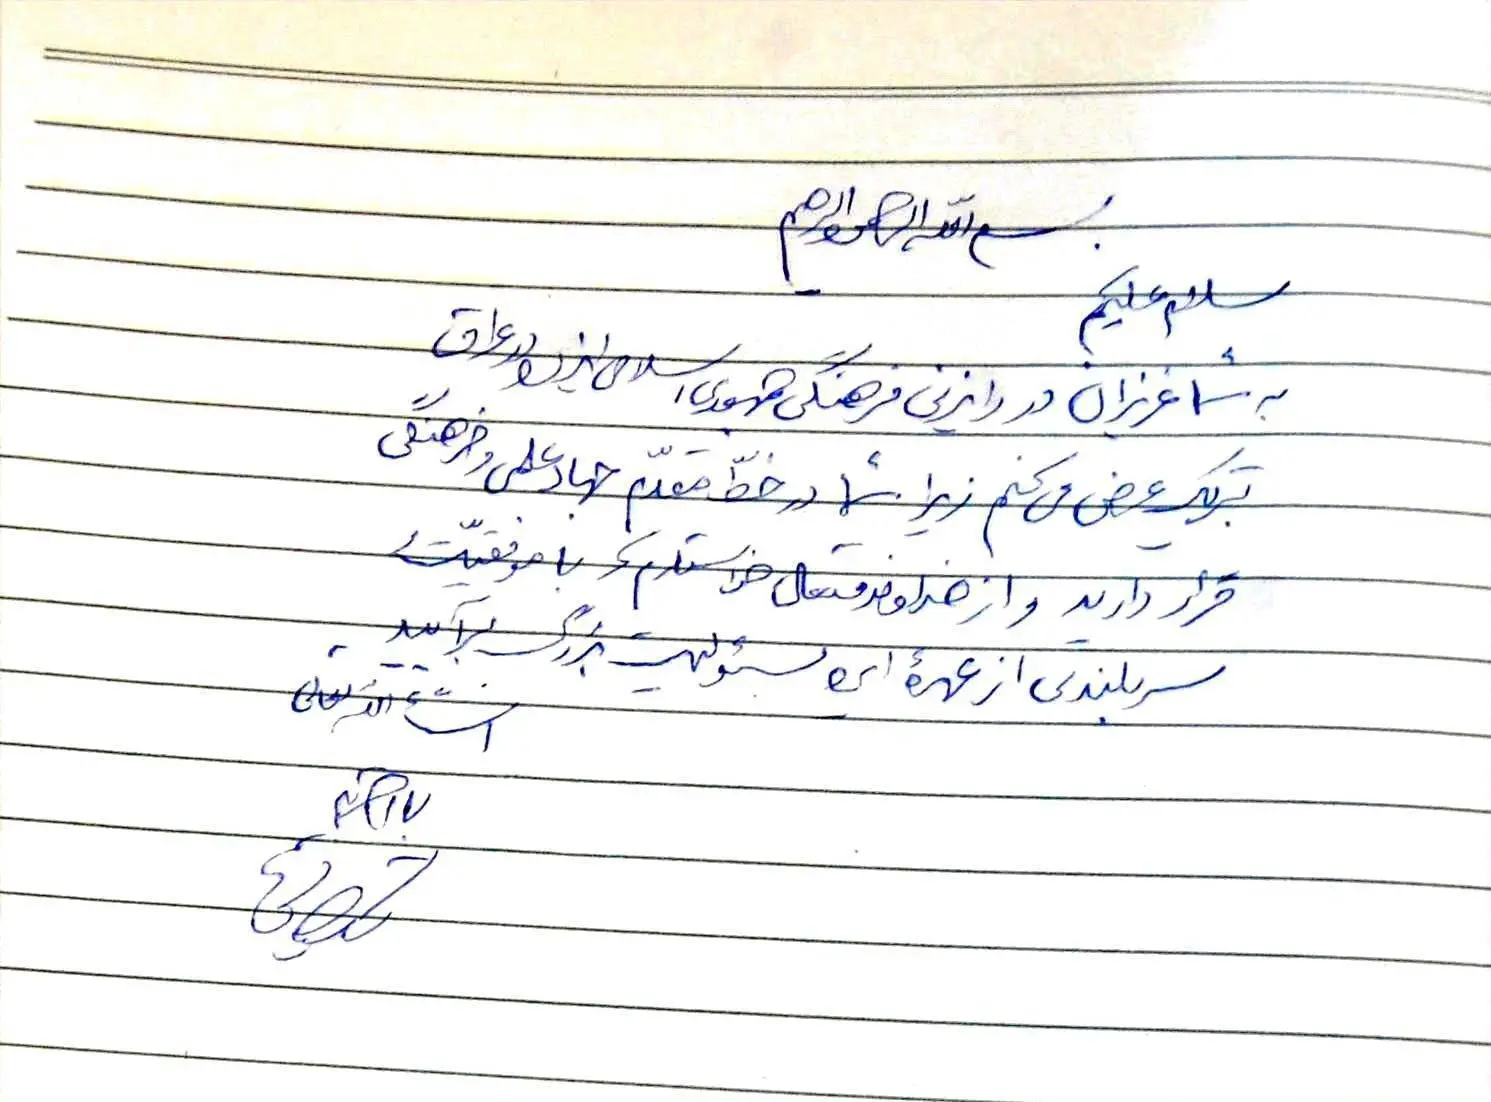 بسم الله الرحمن الرحیم
سلام علیکم
به شما عزیزان در رایزنی فرهنگی جمهوری اسلامی ایران در عراق
تبریک عرض می کنم زیرا شما در خطّ مقدّم جهاد علمی و فرهنگی
قرار دارید و از خداوند متعال خواستارم که با موفقیّت و
سربلندی از عهدهٔ این مسئولیت بزرگ برآیید
انشاءالله تعالی